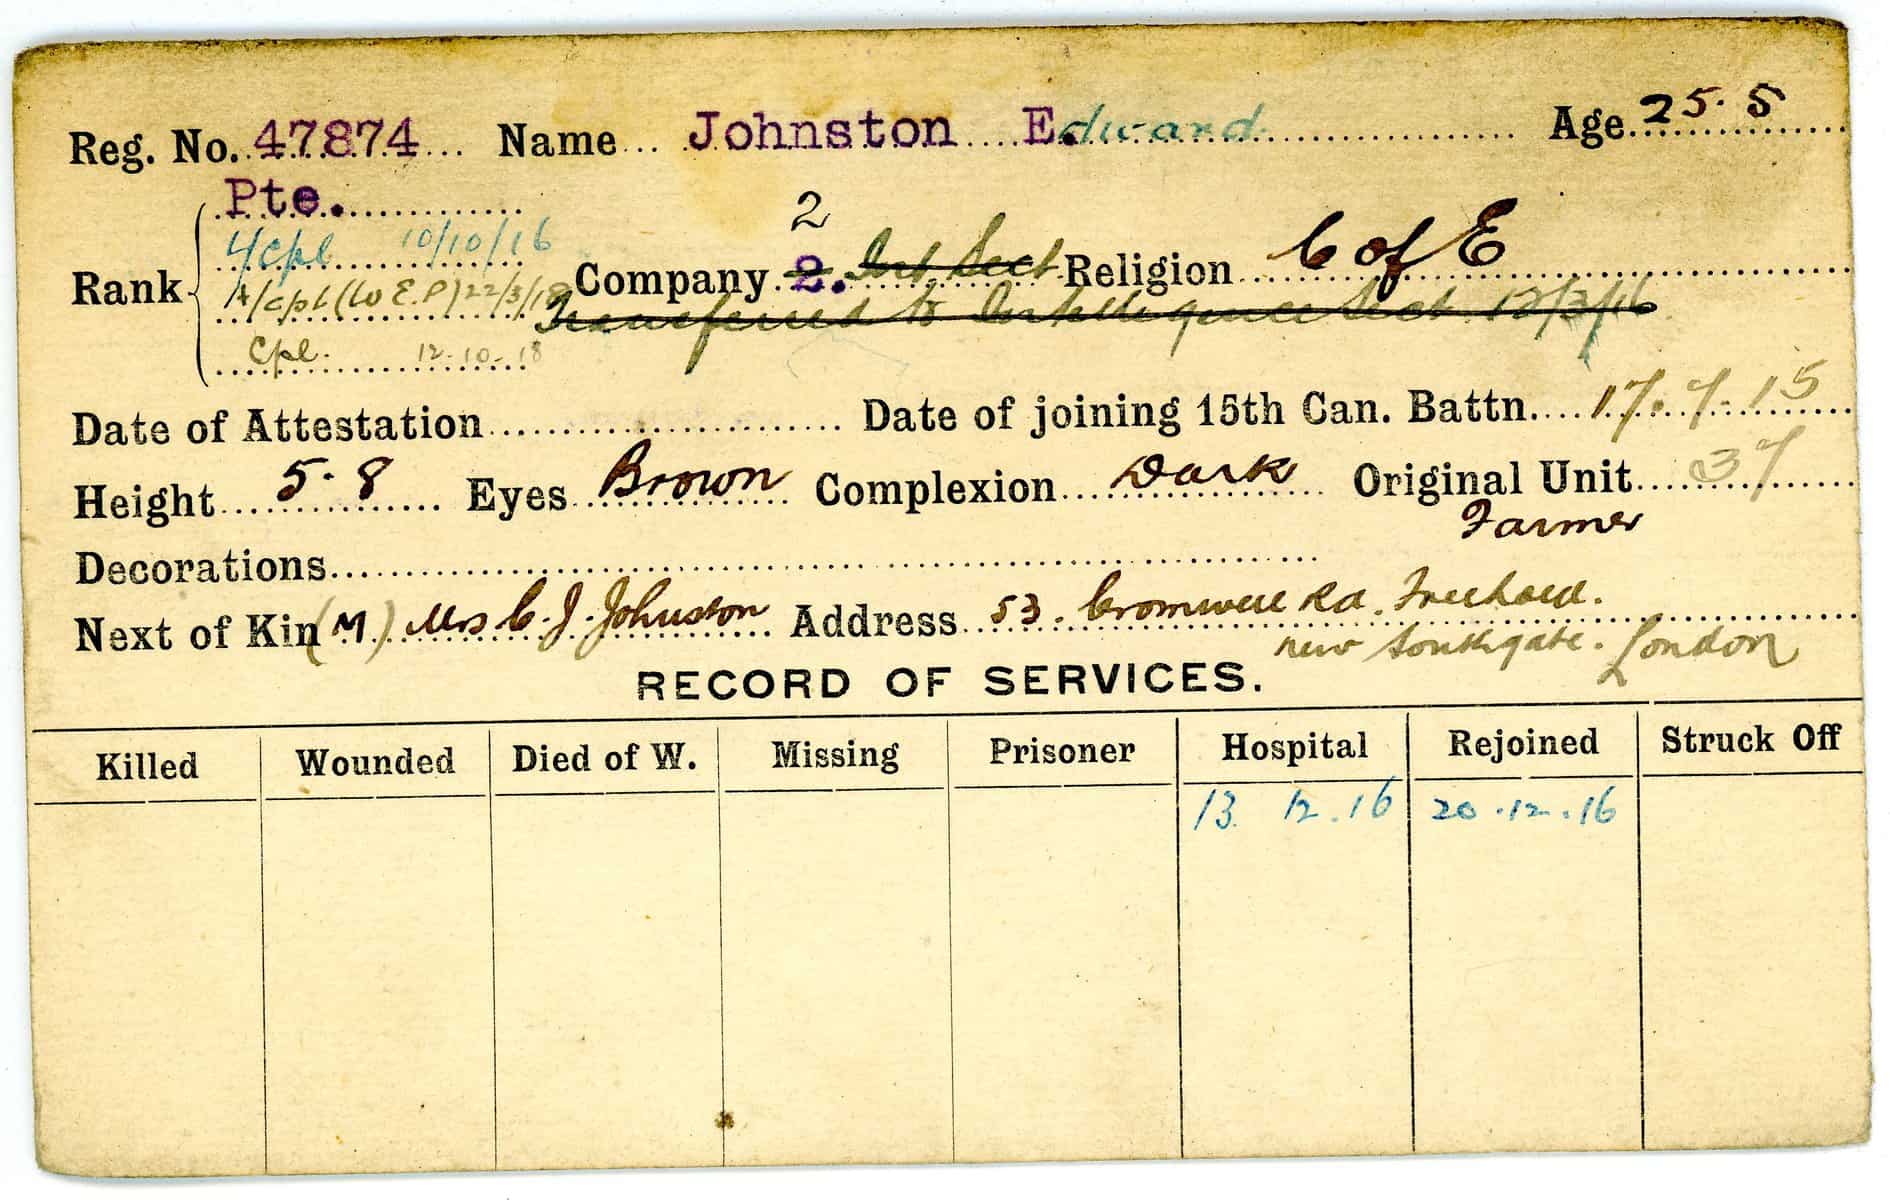 Reg. No. 47874 Name Johnston E.dward Age 25.5
Pte.
2
L/Cpl 10/10/16
Rank Company 2. Int Sect Religion C of E
A/Cpl (W.E.P) 22/3/18 Transferred to Intelligence Sect 12/3/16
Cpl. 12.10.18
Date of Attestation Date of joining 15th Can. Battn. 17.7.15
Height 5.8 Eyes Brown Complexion Dark Original Unit 37
Farmer
Decorations
Next of Kin (M.) Mrs C. J. Johnston Address 53. Cromwell Rd. Freehold.
new Southgate. London
RECORD OF SERVICES.
Killed Wounded Died of W. Missing Prisoner Hospital Rejoined Struck Off
13. 12.16 20.12.16